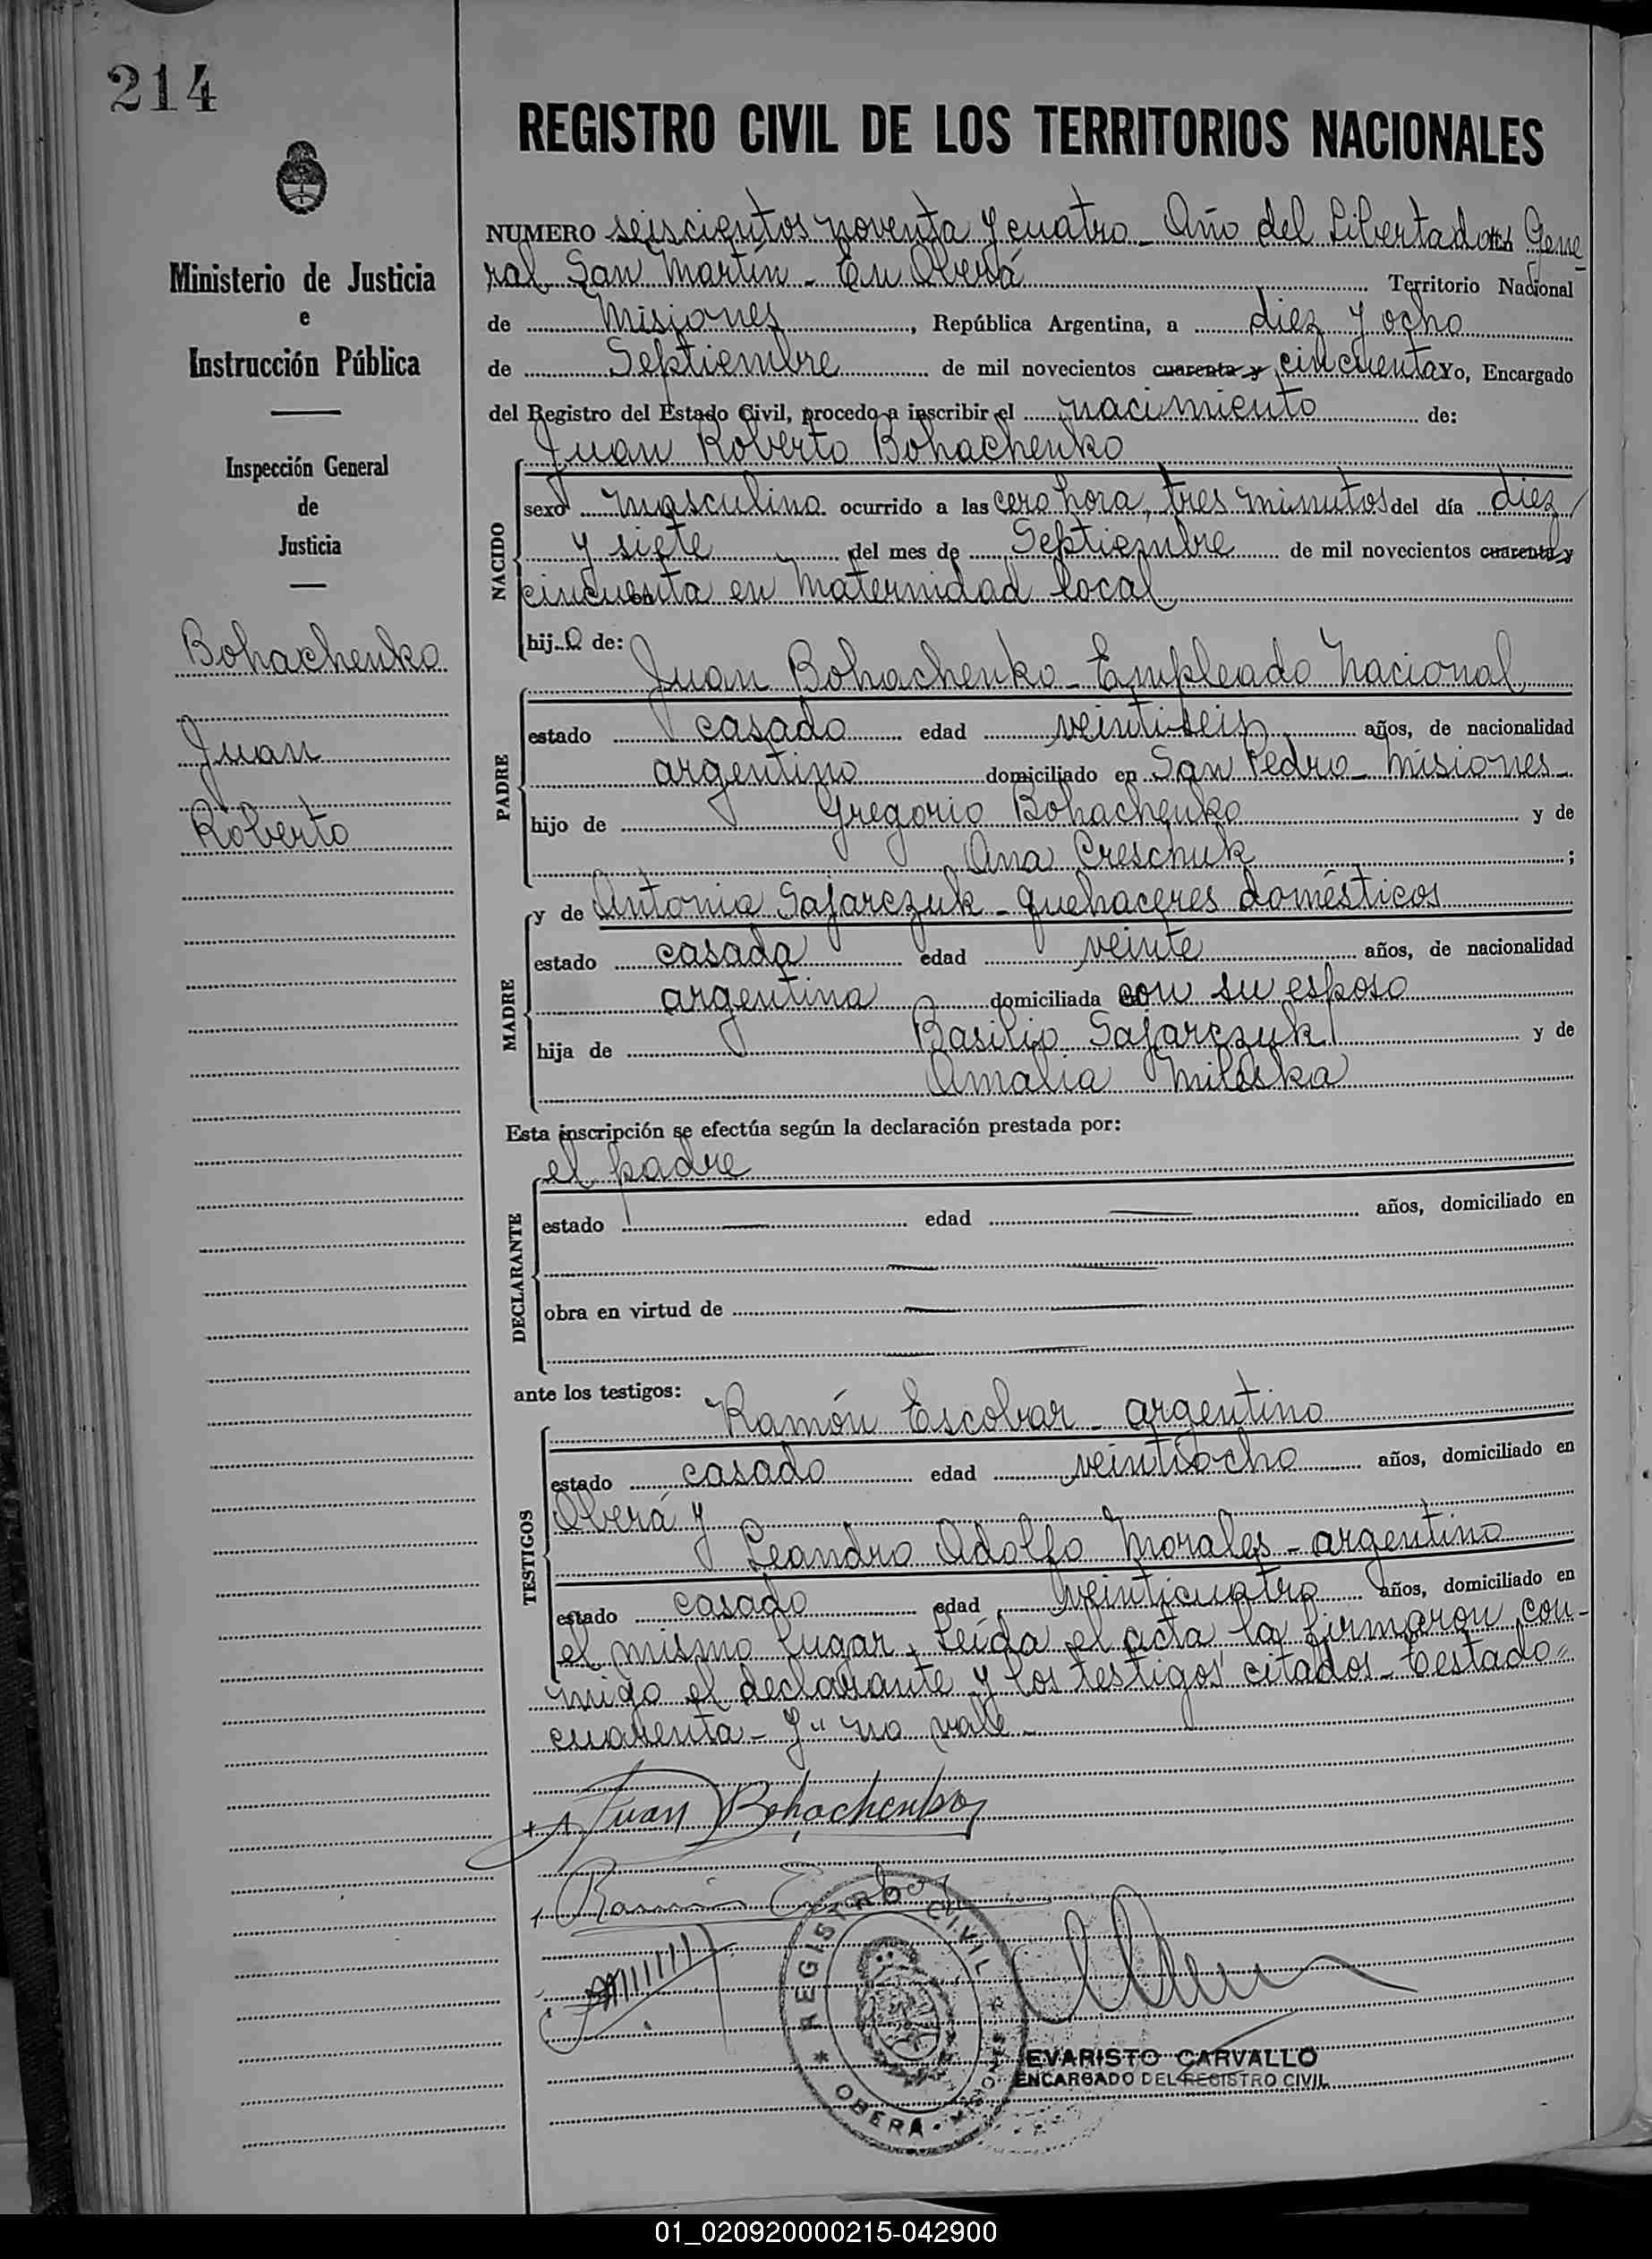 214
REGISTRO CIVIL DE LOS TERRITORIOS NACIONALES
Ministerio de Justicia
e
Instrucción Pública
Inspección General
de
Justicia
Bohachenko
Juan
Roberto
NUMERO seiscientos noventa y cuatro_ Año del Libertador Gene
ral San Martín - En Oberá Territorio Nacional
de Misiones, República Argentina, a diez y ocho
de Septiembre de mil novecientos cuarenta y cincuenta Yo, Encargado
del Registro del Estado Civil, procedo a inscribir el nacimiento de:
Juan Roberto Bohachenko
NACIDO
sexo masculino ocurrido a las cero hora, tres minutos del día diez
y siete del mes de Septiembre de mil novecientos cuarenta y
cincuenta en Maternidad local
hijo de:
Juan Bohachenko - Empleado Nacional
PADRE
estado casado edad veintiseis años, de nacionalidad
argentino domiciliado en San Pedro - Misiones -
hijo de Gregorio Bohachenko y de
Ana Creschuk ;
MADRE
y de Antonia Sajarczuk - quehaceres domésticos
estado casada edad veinte años, de nacionalidad
argentina domiciliada con su esposo
hija de Basilio Sajarczuk y de
Amalia Miloska
Esta inscripción se efectúa según la declaración prestada por:
el padre
DECLARANTE
estado — edad — años, domiciliado en
obra en virtud de —
ante los testigos:
Ramón Escobar - argentino
TESTIGOS
estado casado edad veintiocho años, domiciliado en
Oberá y
Leandro Adolfo Morales - argentino
estado casado edad veinticuatro años, domiciliado en
el mismo lugar. Leída el acta la firmaron con-
migo el declarante y los testigos citados - Testado "
cuarenta - y" no vale -
Juan Bohachenko
Ramón Escobar
REGISTRO CIVIL
OBERÁ - MISIONES
EVARISTO CARVALLO
ENCARGADO DEL REGISTRO CIVIL
01_020920000215-042900